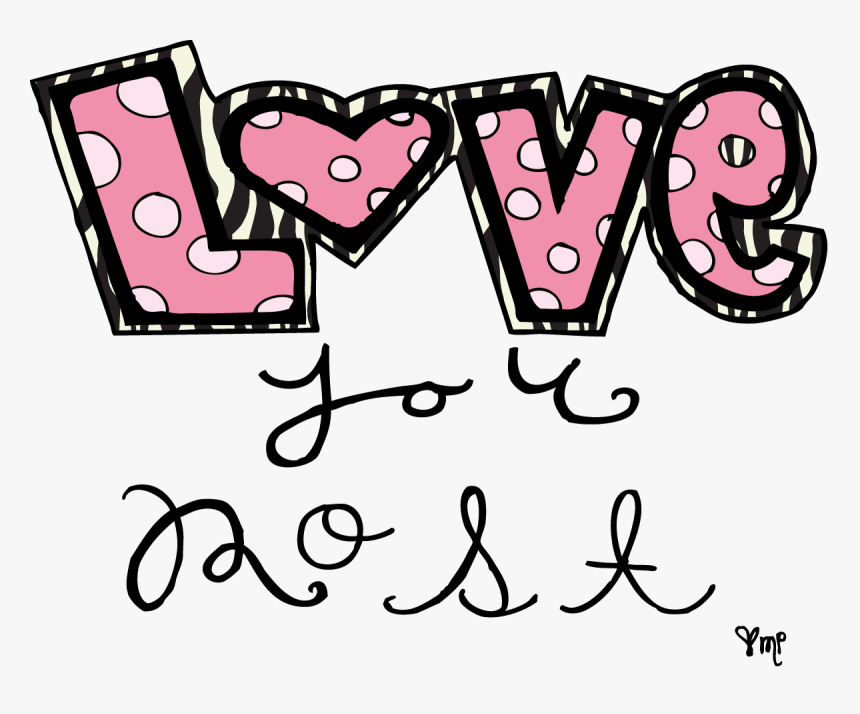 Love
you
most
mp